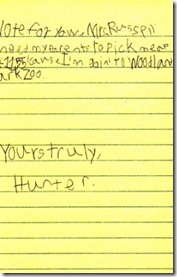 Note for you, Mrs. Russell
I need my parents to pick me up
at 1:55 'cause I'm goin' to Woodland
Park Zoo.
Yours truly,
Hunter.